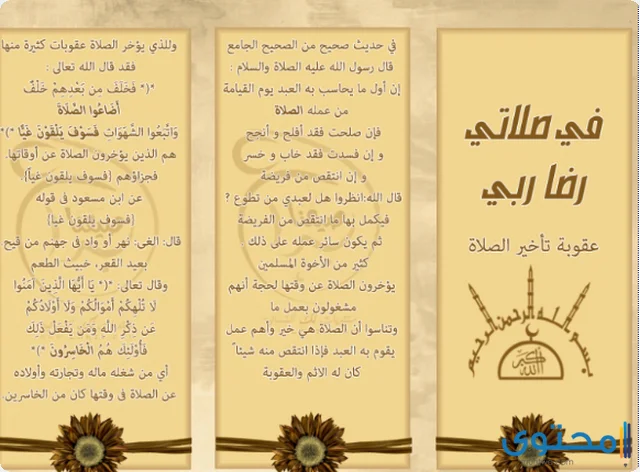 في صلاتي
رضا ربي
عقوبة تأخير الصلاة
بسم الله الرحمن الرحيم
الله أكبر
في حديث صحيح من الصحيح الجامع
قال رسول الله عليه الصلاة والسلام :
إن أول ما يحاسب به العبد يوم القيامة
من عمله الصلاة
فإن صلحت فقد أفلح و أنجح
و إن فسدت فقد خاب و خسر
و إن انتقص من فريضة
قال الله:انظروا هل لعبدي من تطوع ?
فيكمل بها ما انتقص من الفريضة
ثم يكون سائر عمله على ذلك
كثير من الأخوة المسلمين
يؤخرون الصلاة عن وقتها لحجة أنهم
مشغولون بعمل ما
وتناسوا أن الصلاة هي خير وأهم عمل
يقوم به العبد فإذا انتقص منه شيئاً
كان له الاثم والعقوبة
وللذي يؤخر الصلاة عقوبات كثيرة منها
فقد قال الله تعالى :
*(* فَخَلَفَ مِن بَعْدِهِمْ خَلْفٌ
أَضَاعُوا الصَّلَاةَ
وَاتَّبَعُوا الشَّهَوَاتِ فَسَوْفَ يَلْقَوْنَ غَيًّا *)*
هم الذين يؤخرون الصلاة عن أوقاتها.
فجزاؤهم {فسوف يلقون غياً}.
عن ابن مسعود في قوله
{فسوف يلقون غيا}
قال: الغي: نهر أو واد في جهنم من قيح
بعيد القعر، خبيث الطعم
وقال تعالى: *(* يَا أَيُّهَا الَّذِينَ آمَنُوا
لَا تُلْهِكُمْ أَمْوَالُكُمْ وَلَا أَوْلَادُكُمْ
عَن ذِكْرِ اللَّهِ وَمَن يَفْعَلْ ذَلِكَ
فَأُوْلَئِكَ هُمُ الْخَاسِرُونَ *)*
أي من شغله ماله وتجارته وأولاده
عن الصلاة في وقتها كان من الخاسرين.
محتوى